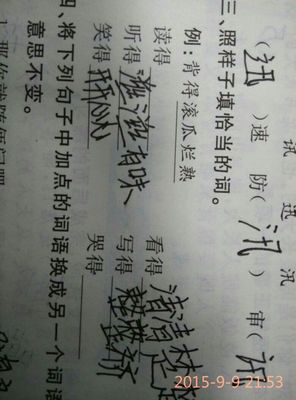 试 迅 汛
(迅)速 防(汛) 审(讯
三、照样子填恰当的词。
例:背得滚瓜烂熟
读得 看得清清楚楚
听得滋滋有味 写得整整齐
笑得开心 哭得
四、将下列句子中加点的词语换成另一个词语
意思不变。
1.那你就随便问吧
2015-9-9 21:53